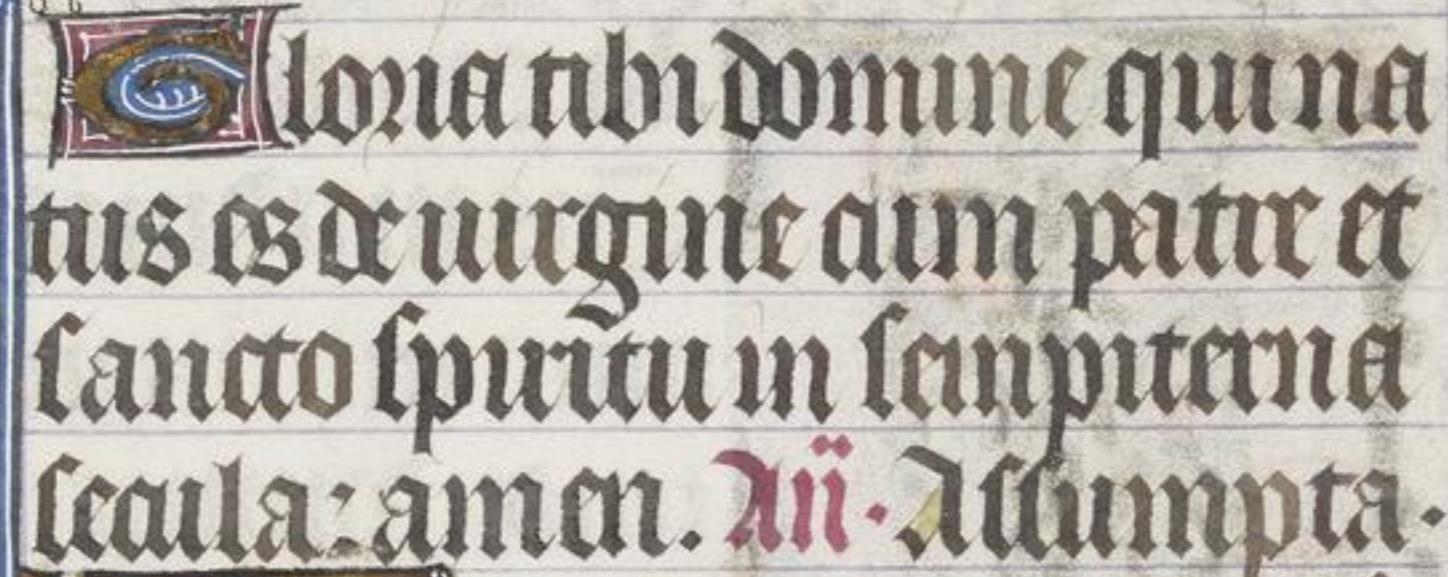 Gloria tibi domine qui na
tus es de uirgine cum patre et
sancto spiritu in sempiterna
secula: amen. An̄. Assumpta.